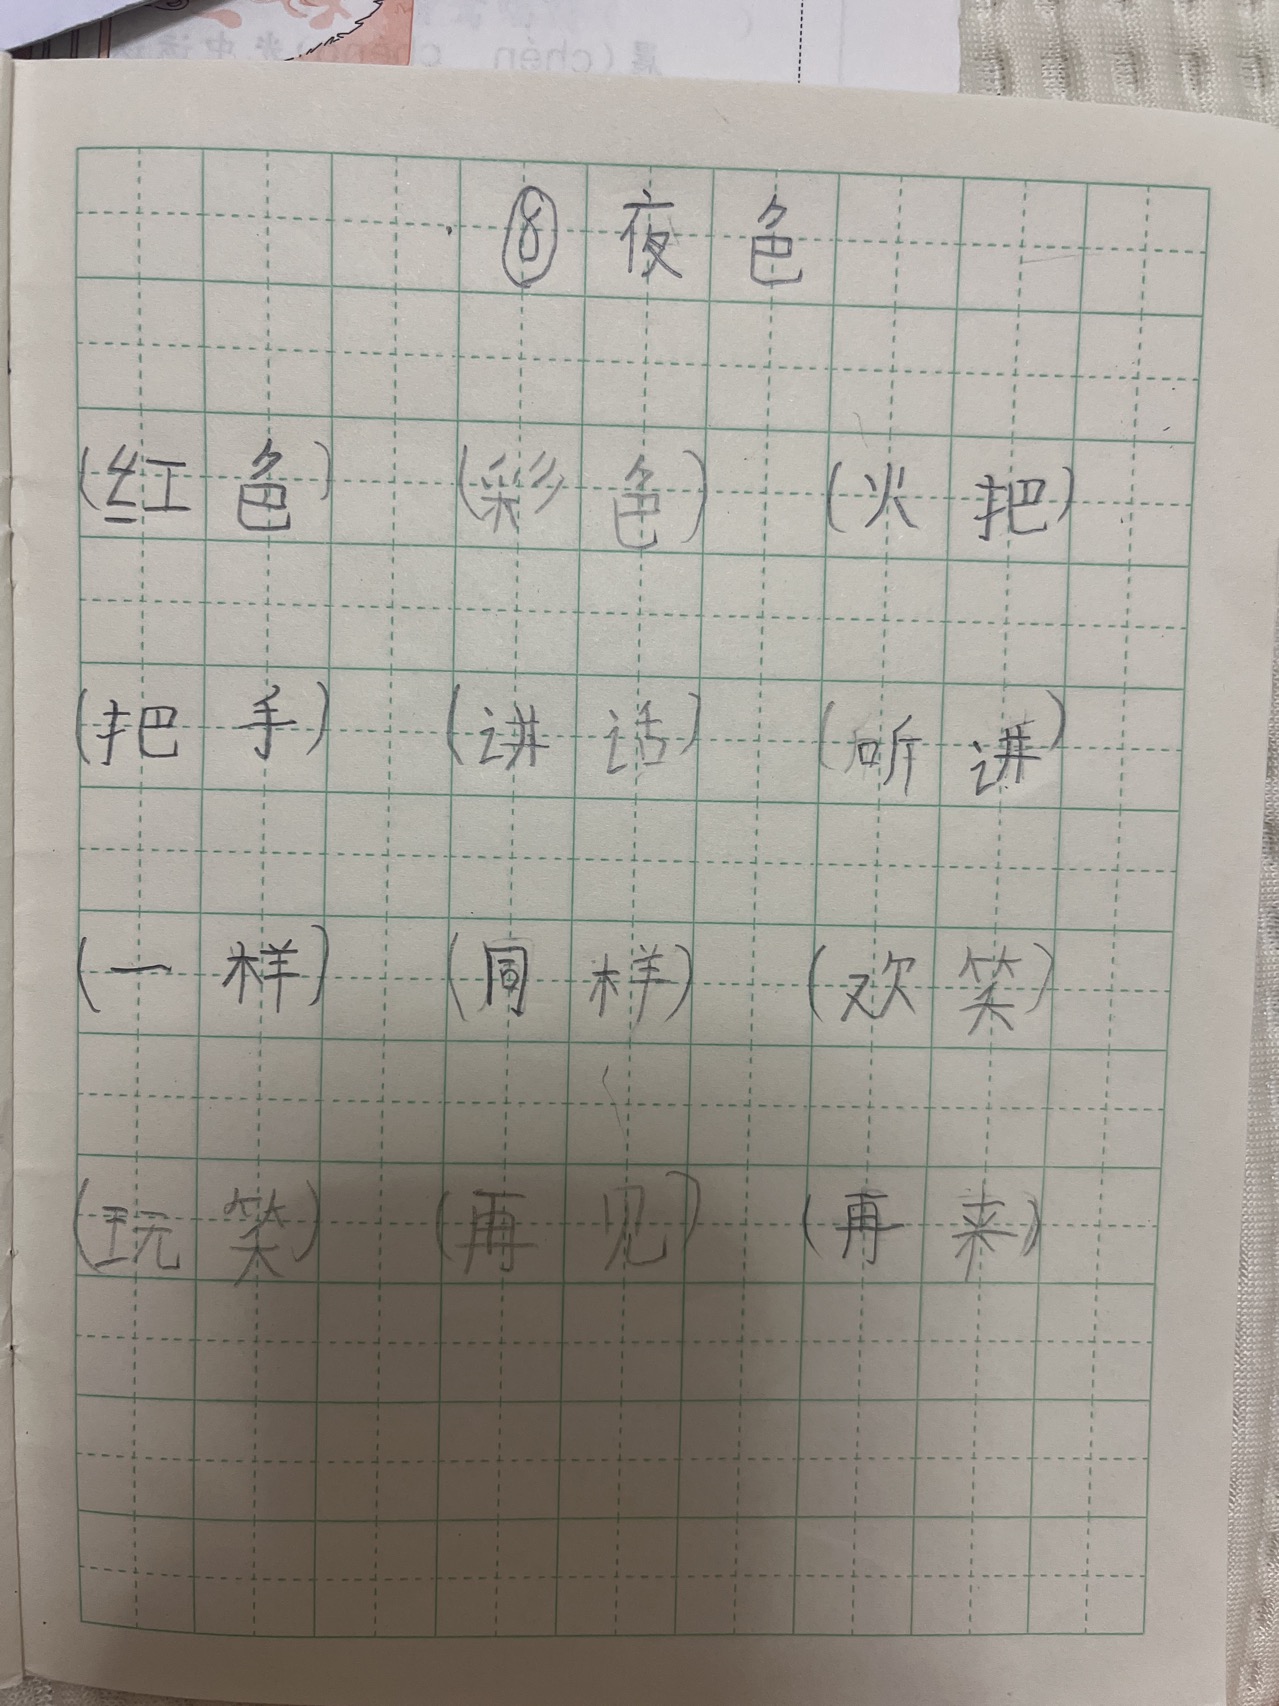 ⑧夜色
(红色) (彩色) (火把)
(把手) (讲话) (听讲)
(一样) (同样) (欢笑)
(玩笑) (再见) (再来)